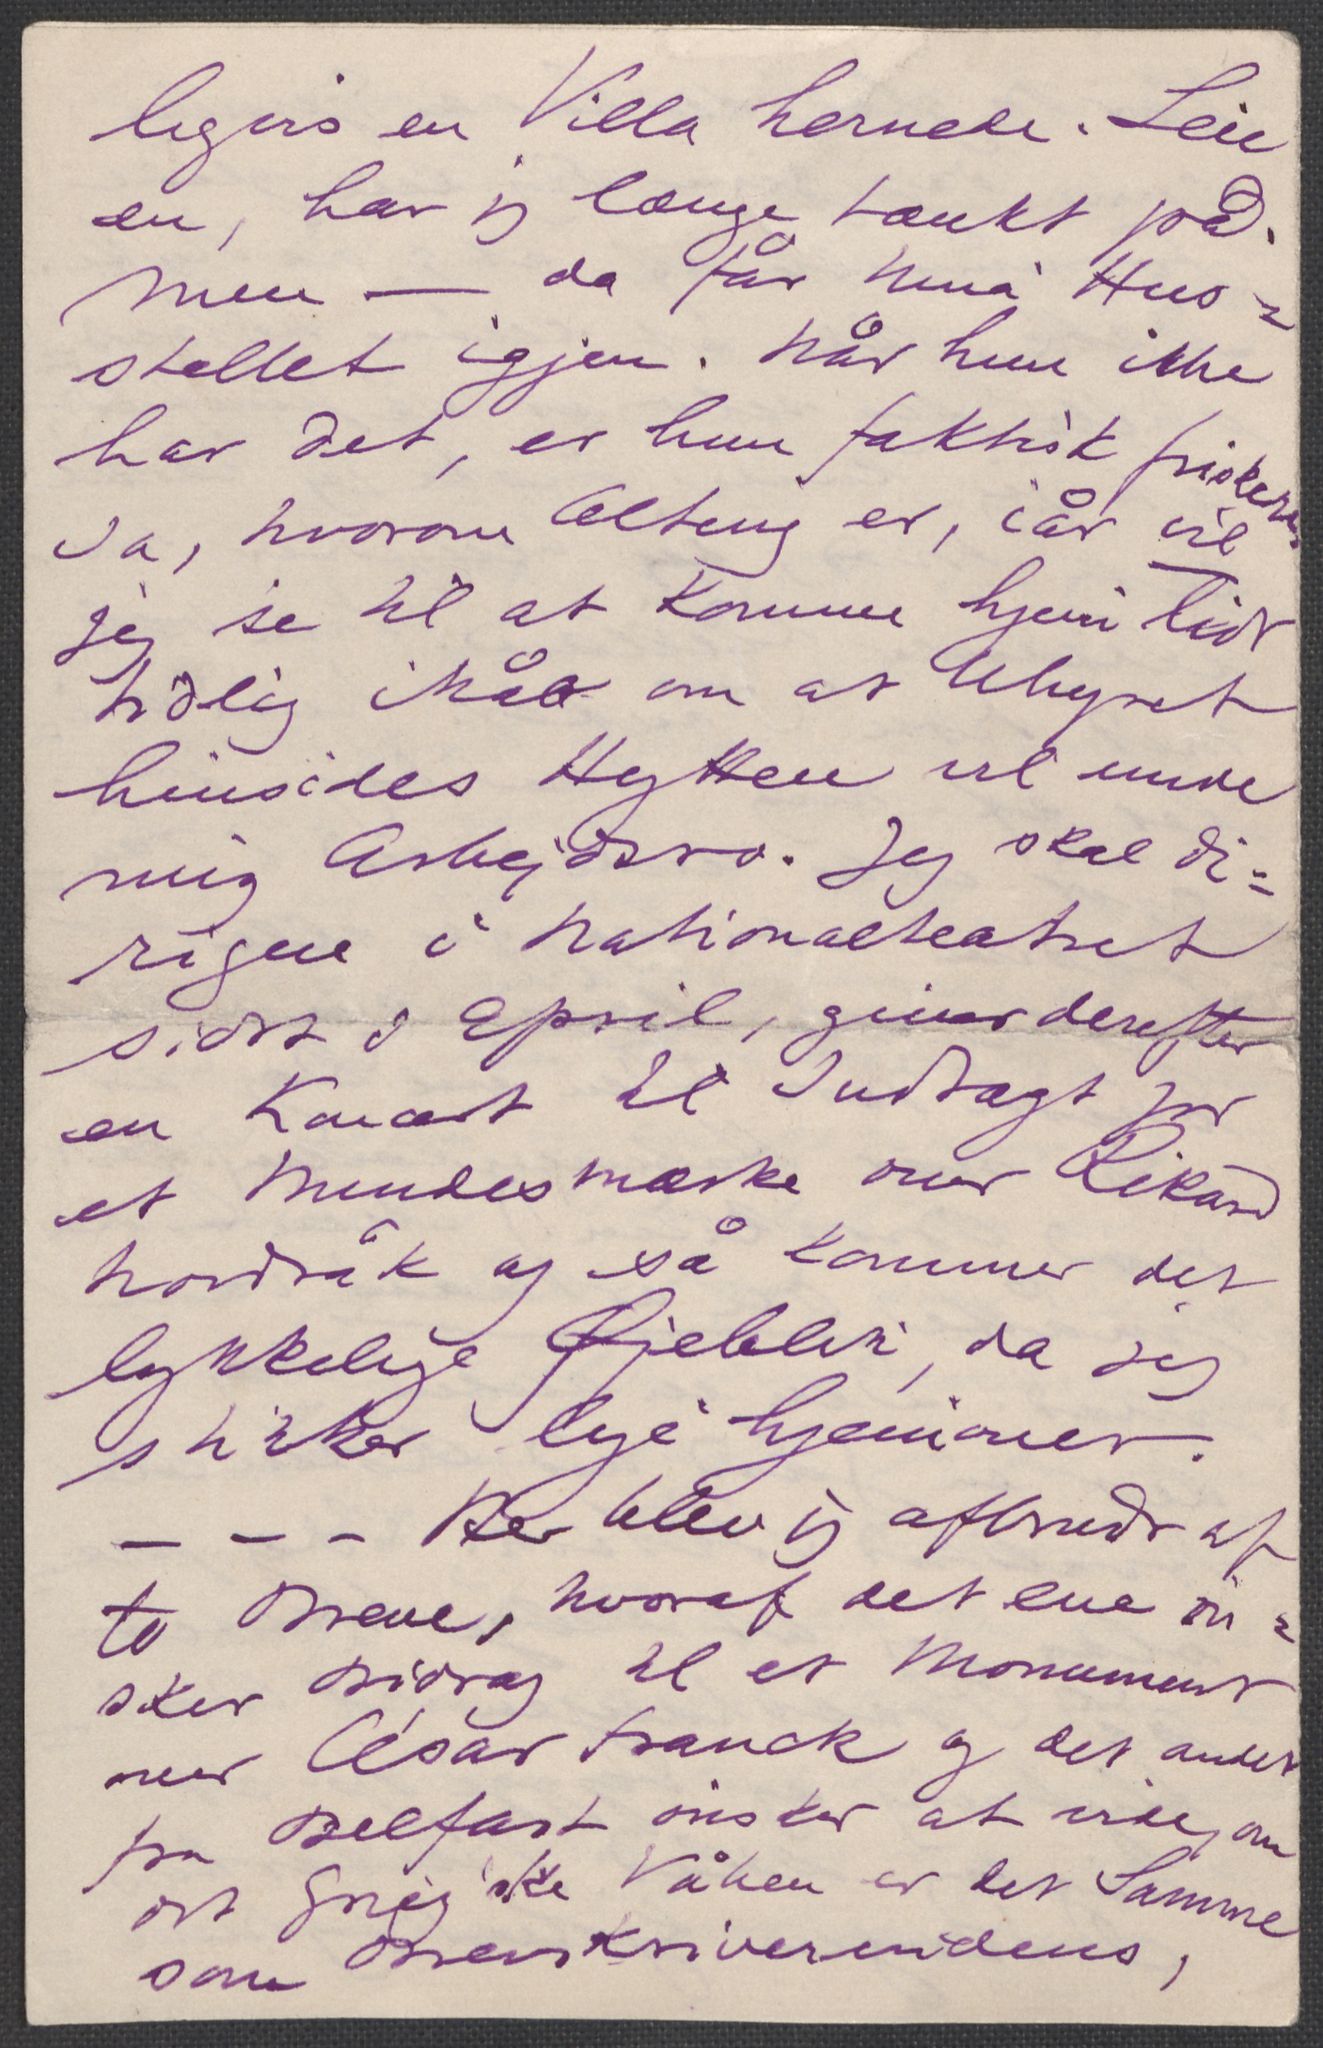 ligvis en Villa hernede. Leie
en, har jeg længe tænkt på.
Men — da får Nina Hus=
stellet igjen. Når hun ikke
har det, er hun faktisk friskere.
Ja, hvorom Alting er, iår vil
jeg se til at komme hjem lidt
tidlig i Håb om at Uhyret
hinsides Hytten vil unde
mig Arbejdsro. Jeg skal di=
rigere i Nationaltheatret
sidst i April, giver derefter
en Koncert til Indtægt for
et Mindesmærke over Rikard
Nordråk og så kommer det
lykkelige Øjeblik, da jeg
stikker lige hjemover.
— — — Her blev jeg afbrudt af
to Breve, hvoraf det ene øn=
sker Bidrag til et Monument
over César Franck og det andet
fra Belfast ønsker at vide, om
det Grieg'ske Våben er det Samme
som Brevskriverindens,